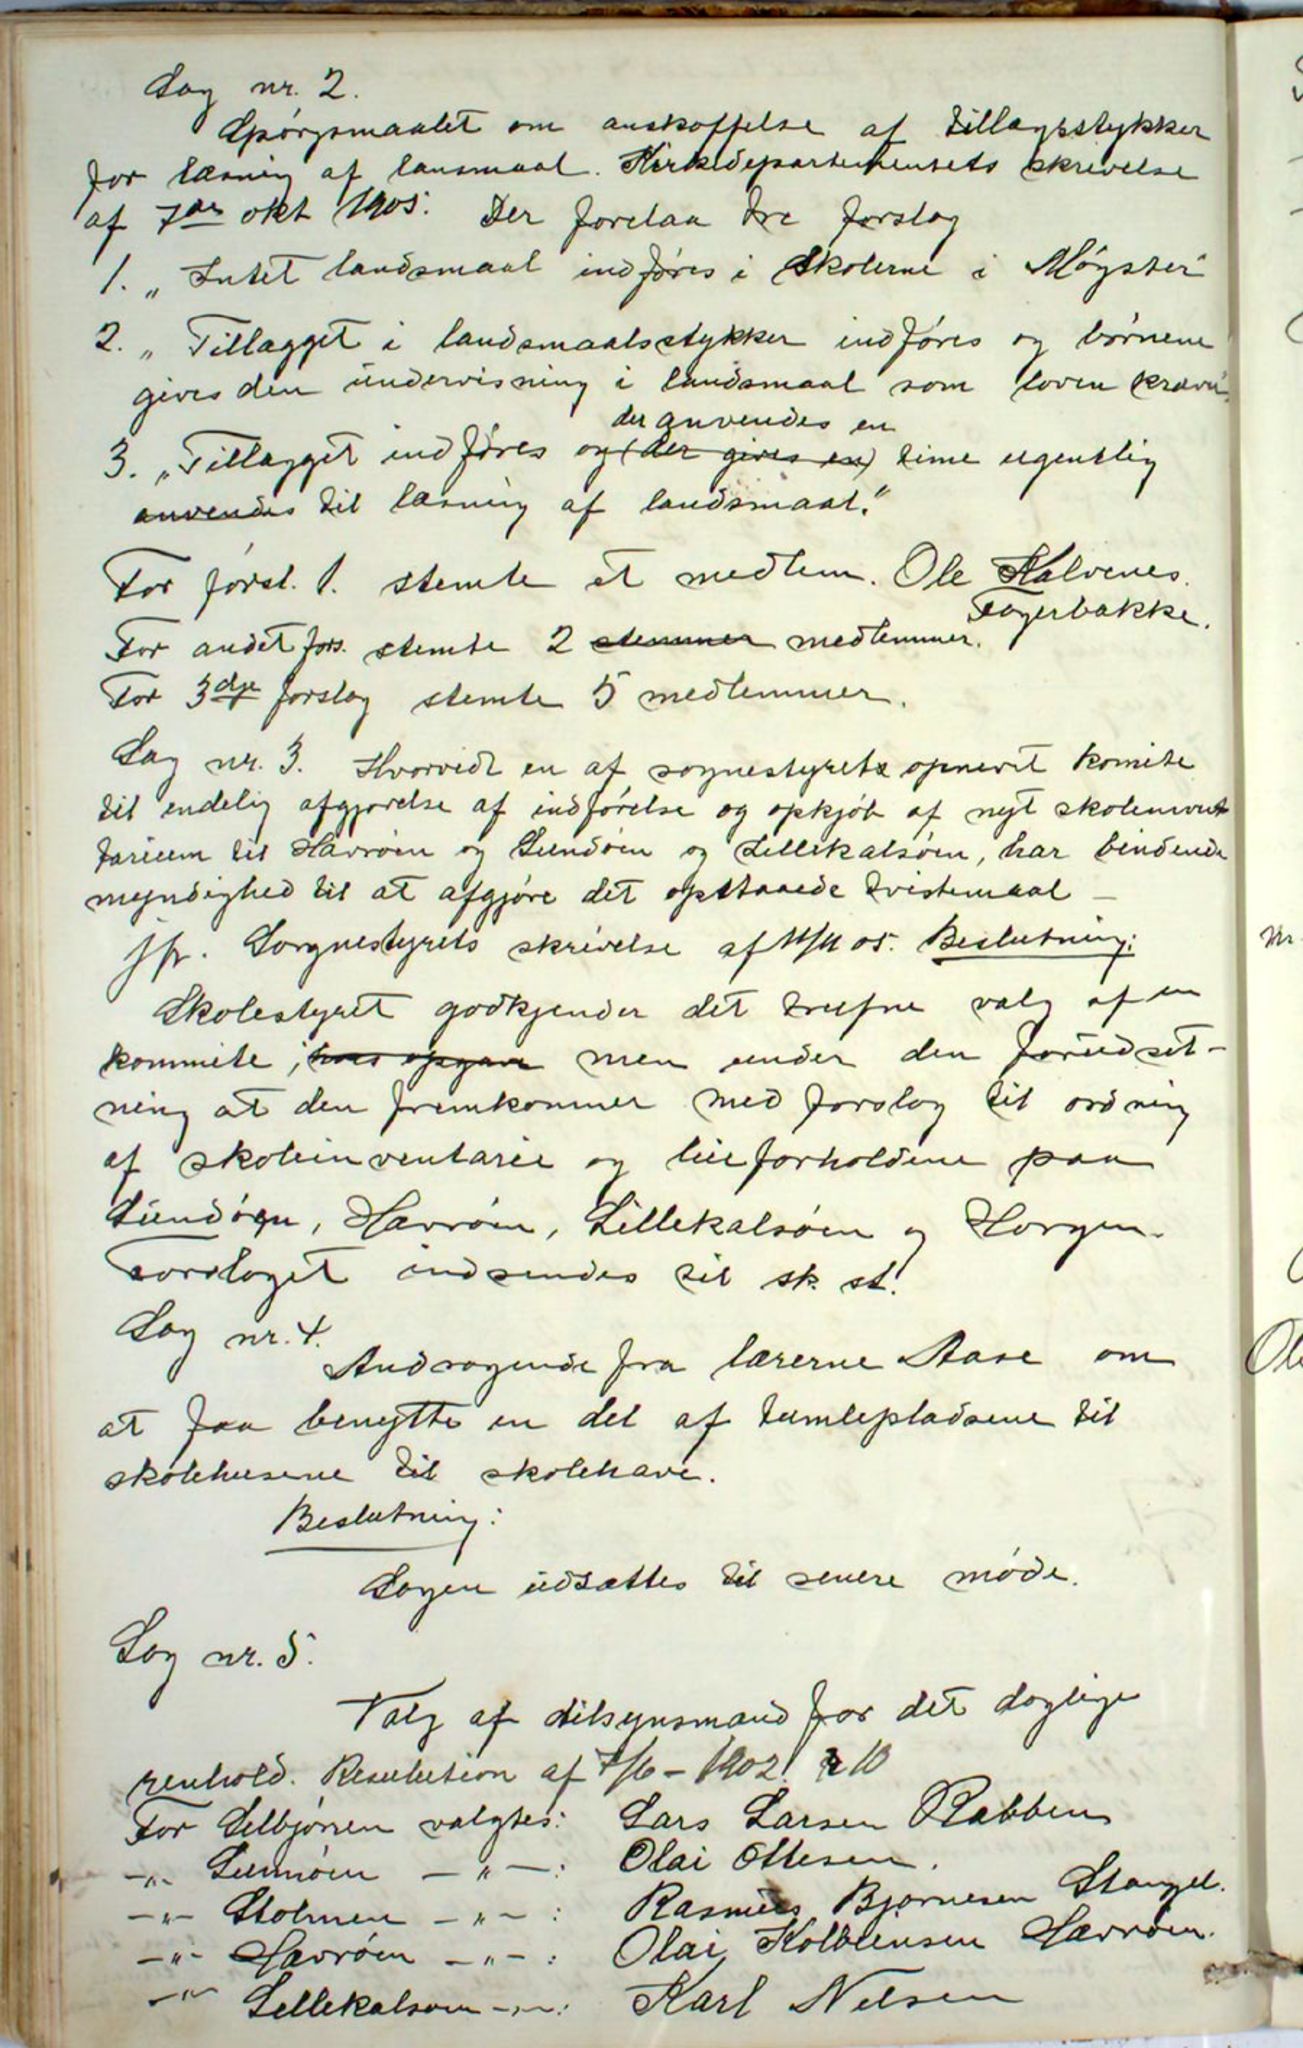 Sag nr. 2.
Spórgsmaalet om anskaffelse af tillægsstykker
for læsning af lansmaal. Kirkedepartementets skrivelse
af 7de okt 1905. Der forelaa tre forslag
1. „Intet landsmaal indføres i skolerne i Møgster"
2. „Tillægget i landsmaalsstykker indføres og børnene
gives den undervisning i landsmaal som loven kræver.
der anvendes en
3. „Tillægget indføres og (der gives en) time ugentlig
anvendes til læsning af landsmaal."
For forsl. 1. stemte et medlem. Ole Kalvenes.
Fagerbakke.
For andet fors. stemte 2 stemmer medlemmer.
For 3dje forslag stemte 5 medlemmer.
Sag nr. 3. Hvorvidt en af sognestyrets opnevnt komite
til endelig afgjørelse af indførelse og opkjøb af nyt skoleinvent
tarium til Havrøen og Sundøen og Lillekalsøen, har bindende
myndighed til at afgjøre det opstaaede tvistemaal –
jfr. Sorgnestyrets skrivelse af 11/11 05. Beslutning:
Skolestyret godkjender det trufne valg af en
kommite, men under den forudset-
ning at den fremkommer med forslag til ordning
af skoleinventarie og leieforholdene paa
Sundøen, Havrøen, Lillekalsøen og Horgen.
Forslaget indsendes til sk. st.
Sag nr. 4.
Andragende fra lærerne Aase om
at faa benytte en del af tumlepladsene til
skolehusene til skolehave.
Beslutning:
Sagen udsættes til senere møde.
Sag nr. 5.
Valg af tilsynsmand for det daglige
renhold. Resulution af 7/6 – 1902. 10
For Selbjørn valgtes: Lars Larsen Rabben
–„– Sunnøen –„–: Olai Ottesen.
–„– Stolmen –„–: Rasmus Bjørnesen Stangel.
–„– Havrøen –„–: Olai Kolbensen Havrøen.
–„– Lellekalsøen –„–: Karl Nilsen
mr.
Ole